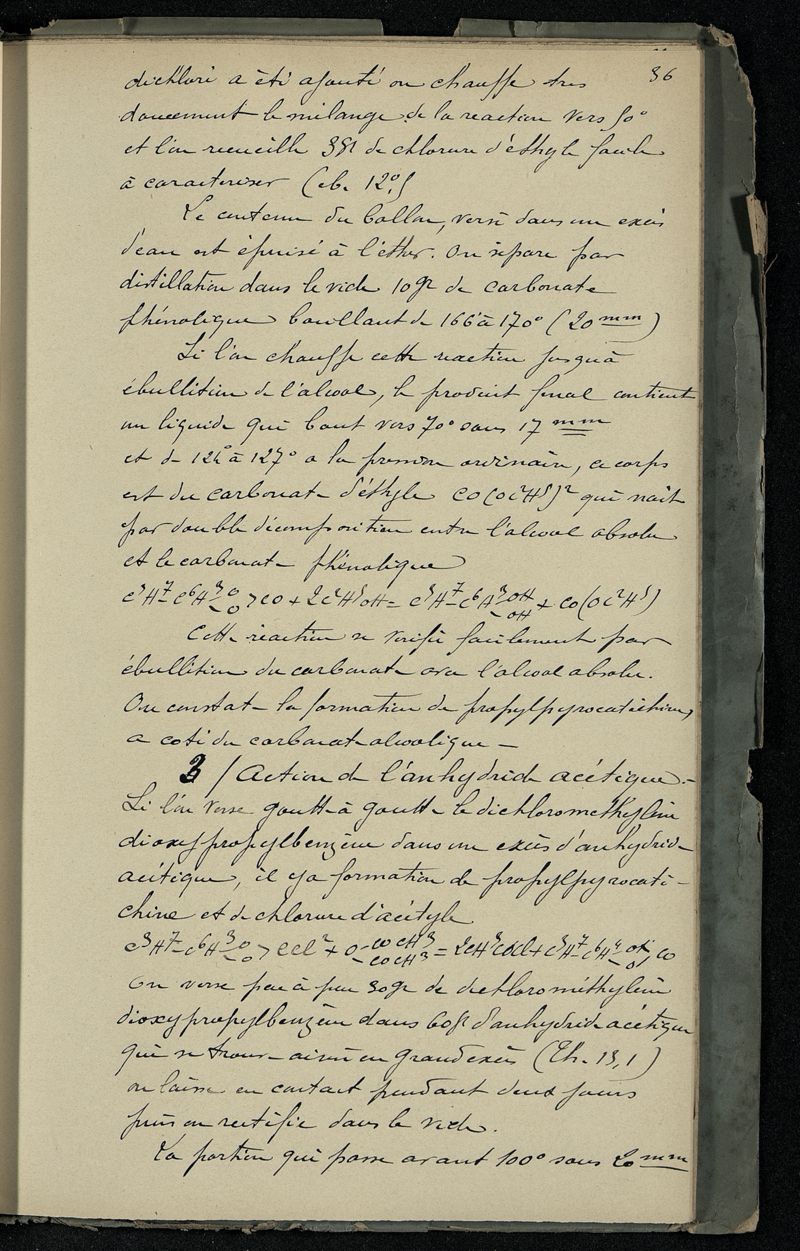 36
dichloré a été ajouté on chauffe très
doucement le mélange de la reaction vers 50°
et l'on recueille 38g de chlorure d'éthyle facile
à caracteriser (eb. 12°5)
Le contenu du ballon, versé dans un excès
d'eau est épuisé à l'éther. On sépare par
distillation dans le vide 10gr de carbonate
phénolique bouillant de 166° à 170° (20 mm)
Si l'on chauffe cette reaction jusqu'à
ébullition de l'alcool, le produit final contient
un liquide qui bout vers 70° sous 17 mm
et de 124° à 127° a la pression ordinaire, ce corps
est du carbonate d'éthyle CO(OC²H⁵)² qui nait
par double décomposition entre l'alcool absolu
et le carbonate phénolique
C³H⁷-C⁶H³<O-O>CO + 2C²H⁵OH = C³H⁷-C⁶H³<OH-OH + CO(OC²H⁵)
Cette réaction se verifie facilement par
ébullition du carbonate avec l'alcool absolu.
On constate la formation de propylpyrocatéchine,
a coté du carbonate alcoolique –
3 / Action de l'anhydride acétique. –
Si l'on verse goutte à goutte le dichlorométhylène
dioxypropylbenzène dans un excès d'anhydride
acétique, il y a formation de propylpyrocaté-
chine et de chlorure d'acétyle
C³H⁷-C⁶H³<O-O>CCl² + O<COCH³-COCH³ = 2CH³COCl + C³H⁷-C⁶H³<O-O>CO
On verse peu à peu 30gr de dichlorométhylène
dioxypropylbenzène dans 60gr d'anhydride acétique
qui se trouve ainsi en grand excès (Th. 13,1)
on laisse en contact pendant deux jours
puis on rectifie dans le vide.
La portion qui passe avant 100° sous 20 mm